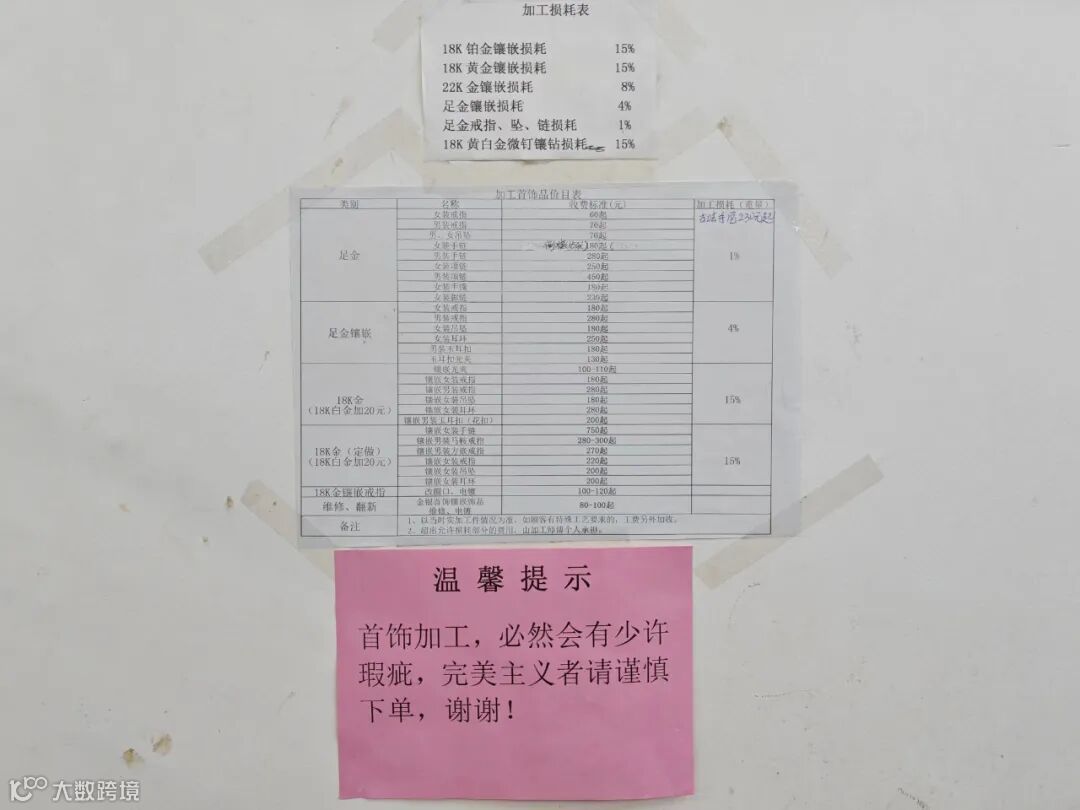 加工损耗表
18K 铂金镶嵌损耗 15%
18K 黄金镶嵌损耗 15%
22K 金镶嵌损耗 8%
足金镶嵌损耗 4%
足金戒指、坠、链损耗 1%
18K 黄白金微钉镶钻损耗 15%
加工首饰品价目表
类别 名称 收费标准(元) 加工损耗(重量)
足金 1%
女装戒指 60起
男装戒指 70起
男、女吊坠 70起
女装手链 180起
男装手链 280起
女装项链 250起
男装项链 450起
女装手镯 180起
女装脚链 230起
足金镶嵌 4%
女装戒指 180起
男装戒指 280起
女装吊坠 180起
女装耳环 250起
男装玉耳扣 180起
玉耳扣光夹 130起
18K金 15%
(18K白金加20元)
镶嵌光戒 100-110起
镶嵌女装戒指 180起
镶嵌男装戒指 280起
镶嵌女装吊坠 180起
镶嵌女装耳环 280起
镶嵌男装玉耳扣(花扣) 200起
18K金(定做) 15%
(18K白金加20元)
镶嵌女装手链 750起
镶嵌男装马鞍戒指 280-300起
镶嵌男装方嵌戒指 270起
镶嵌女装戒指 220起
镶嵌女装吊坠 200起
镶嵌女装耳环 200起
18K金镶嵌戒指 改圈口、电镀 100-120起
维修、翻新 金银首饰镶嵌饰品 80-100起
维修、电镀
备注 1、以当时实加工件情况为准,如顾客有特殊工艺要求的,工费另外加收。
2、超出允许损耗部分的费用,由加工师傅个人承担。
温馨提示
首饰加工,必然会有少许
瑕疵,完美主义者请谨慎
下单,谢谢!
大数跨境